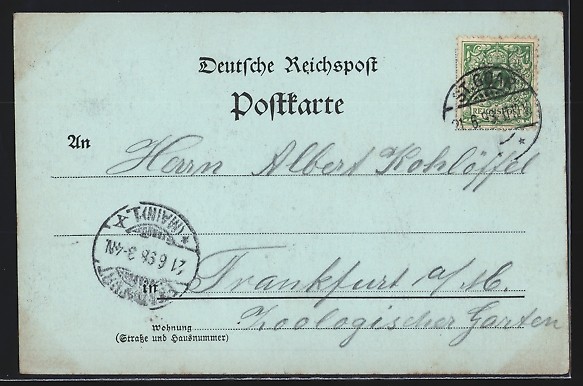 Deutsche Reichspost
Postkarte
An
Herrn Albert Kohlöffel
in Frankfurt a/M.
Zoologischer Garten
Wohnung
(Straße und Hausnummer)
(MAIN) 1. X
21 6 98 3-4N.